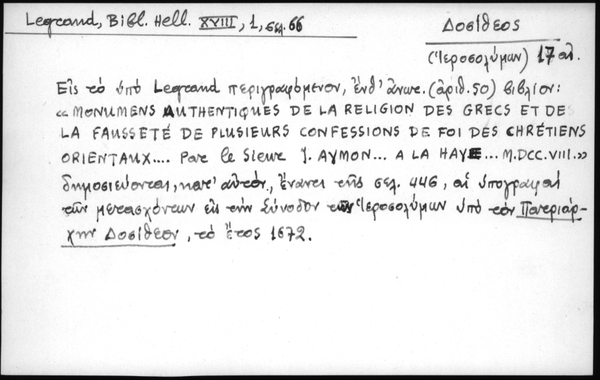 Legrand, Bibl. Hell. XVIII, 1, σελ. 66
Δοσίθεος
(Ἱεροσολύμων) 17 αἰ.
Εἰς τὸ ὑπὸ Legrand περιγραφόμενον, ἔνθ' ἄνωτ. (ἀριθ. 50) βιβλίον:
«MONUMENS AUTHENTIQUES DE LA RELIGION DES GRECS ET DE
LA FAUSSETÉ DE PLUSIEURS CONFESSIONS DE FOI DES CHRÉTIENS
ORIENTAUX.... Par le Sieur J. AYMON... A LA HAYE... M.DCC.VIII.»
δημοσιεύονται, κατ' αὐτόν, ἔναντι τῆς σελ. 446, αἱ ὑπογραφαὶ
τῶν μετασχόντων εἰς τὴν Σύνοδον τῶν Ἱεροσολύμων ὑπὸ τὸν Πατριάρ-
χην Δοσίθεον, τὸ ἔτος 1672.